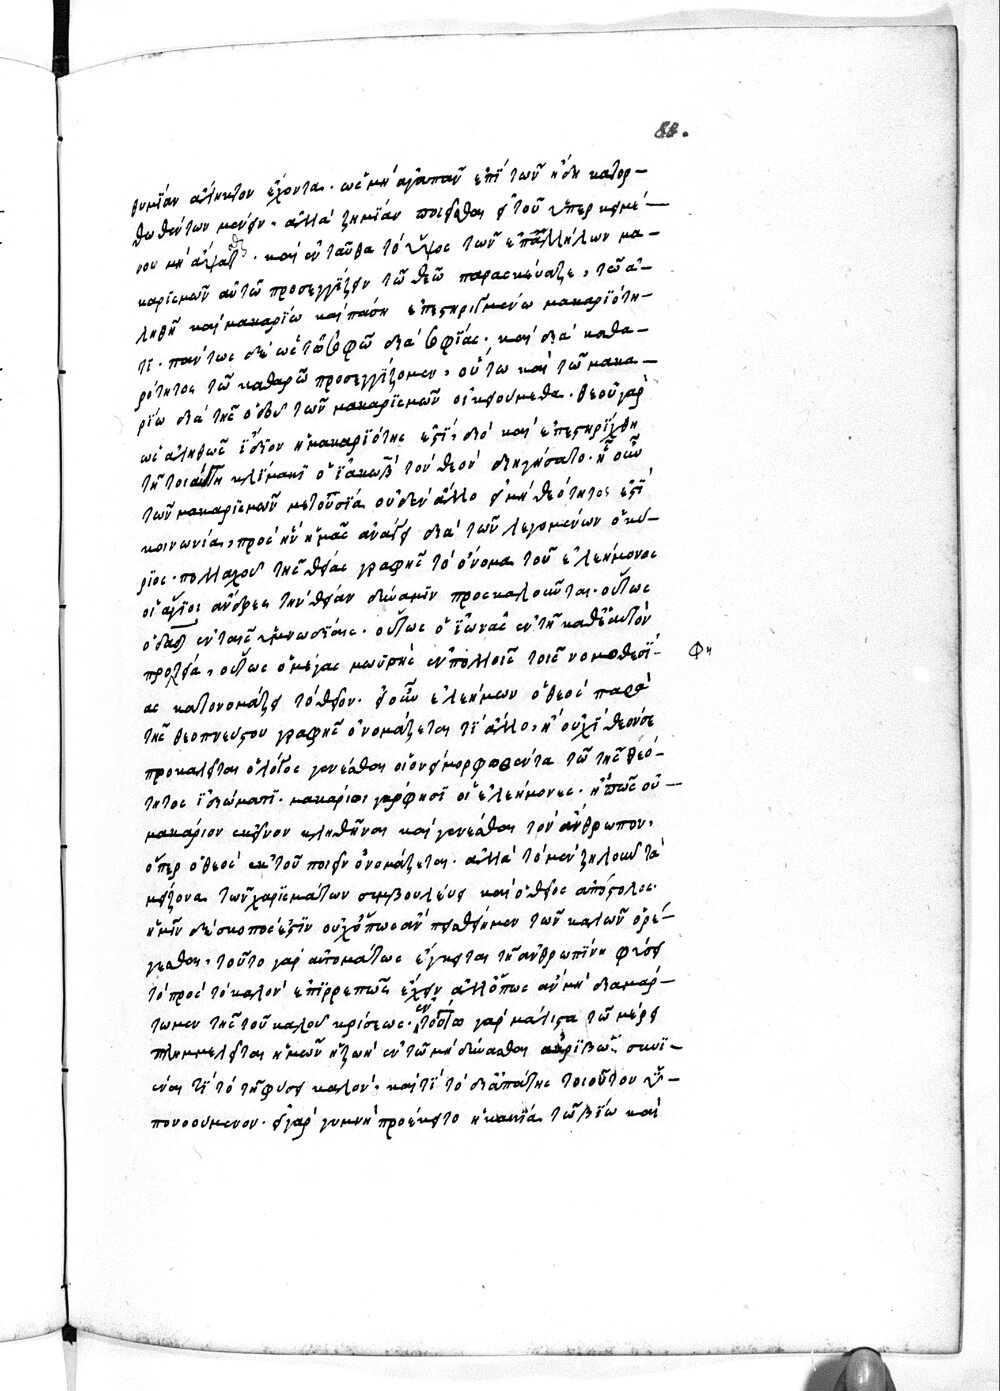 88.
θυμΐαν ἄληκτον ἔχοντα. ὡς μὴ ἀγαπᾶν ἐπῒ τῶν ἤδη κατορ-
θωθέντων μόνον. ἀλλὰ ζημΐαν ποιεῖσθαι εἴ του ὑπερκειμέ-
νου μὴ ἅψαιτο. καὶ ἐνταῦθα τὸ ὕψος τῶν ἐπαλλήλων μα-
καρϊσμῶν αὐτῶ προσεγγΐζειν τῶ θεῶ παρασκευάζει, τῶ ἀ-
ληθῆ καὶ μακαρΐω καὶ πάση ἐπεστηριγμένω μακαρϊότη-
τι. πάντως δὲ ὡς τῶ σοφῶ διὰ σοφΐας. καὶ διὰ καθα-
ρότητος τῶ καθαρῶ προσεγγΐζομεν, οὕτω καὶ τῶ μακα-
ρΐω διὰ τῆς ὁδοῦ τῶν μακαρϊσμῶν οἰκειούμεθα. θεοῦ γὰρ
ὡς ἀληθῶς ἴδϊον ἡ μακαρϊότης ἐστΐ, διὸ καὶ ἐπεστηρῖχθη
τῆ τοιαύτη κλΐμακϊ ὁ ἰακὼβ τὸν θεὸν διηγήσατο. ἡ οὖν
τῶν μακαρϊσμῶν μετουσΐα οὐδὲν ἄλλο εἰ μὴ θεότητος ἐστῒ
κοινωνία, πρὸς ἣν ἡμᾶς ἀνάγει διὰ τῶν λεγομένων ὁ κύ-
ρϊος. πολλαχοῦ τῆς θείας γραφῆς τὸ ὄνομα τοῦ ἐλεήμονος
οἱ ἅγϊοι ἄνδρες τὴν θείαν δύναμϊν προσκαλοῦνται. οὕτως
ὁ δαδ ἐν ταῖς ὑμνωδΐαις. οὕτως ὁ ἰωνᾶς ἐν τῆ καθ' ἑαυτὸν
προφητεία, οὕτως ὁ μέγας μωϋσῆς ἐν πολλοῖς τοῖς νομοθεσΐ-
φη
ας κατονομάζει τὸ θεῖον. εἰ οὖν ἐλεήμων ὁ θεὸς παρὰ
τῆς θεοπνεύστου γραφῆς ὀνομάζεται τΐ ἄλλο, ἢ οὐχῒ θεόν σε
προκαλεῖται ὁ λόγος γενέσθαι οἱονεὶ μορφωθέντα τῶ τῆς θεό-
τητος ἰδϊώματϊ. μακάριοι γάρ φησῒ οἱ ἐλεήμονες. ἢ πῶς οὐ-
μακάριον ἐκεῖνον κληθῆναι καὶ γενέσθαι τὸν ἄνθρωπον,
ὅπερ ὁ θεὸς ἐκ τοῦ ποιεῖν ὀνομάζεται. ἀλλὰ τὸ μὲν ζηλοῦν τὰ
μείζονα τῶν χαρϊσμάτων συμβουλεύει καὶ ὁ θεῖος ἀπόστολος.
ἡμῖν δὲ σκοπὸς ἐστῒν οὐχ' ὅπως ἂν πεισθείημεν τῶν καλῶν ὀρέ-
γεσθαι, τοῦτο γὰρ αὐτομάτως ἔγκειται τῆ ἀνθρωπΐνη φύσει
τὸ πρὸς τὸ καλὸν ἐπϊρρεπῶς ἔχειν ἀλλ' ὅπως ἂν μὴ διαμάρ-
τωμεν τῆς τοῦ καλοῦ κρίσεως. ἐν τούτω γὰρ μάλιστα τῶ μέρει
πλημμελεῖται ἡμῶν ἡ ζωὴ ἐν τῶ μὴ δύνασθαι ἀκρϊβῶς συνϊ-
έναι τΐ τὸ τῆ φύσει καλόν, καὶ τΐ τὸ δι' ἀπάτης τοιοῦτον ὑ-
πονοούμενον. εἰ γὰρ γυμνὴ προέκειτο ἡ κακΐα τῶ βΐω καὶ